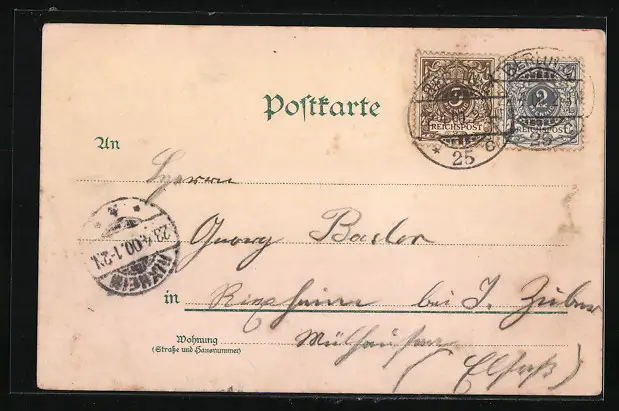 Postkarte
3
REICHSPOST
2
REICHSPOST
BERLIN
25
25
An
Herrn
Georg Bader
23.4.00.1-2N.
in Rixheim bei J. Zuber
Wohnung
(Straße und Hausnummer)
Mülhausen
(Elsaß)